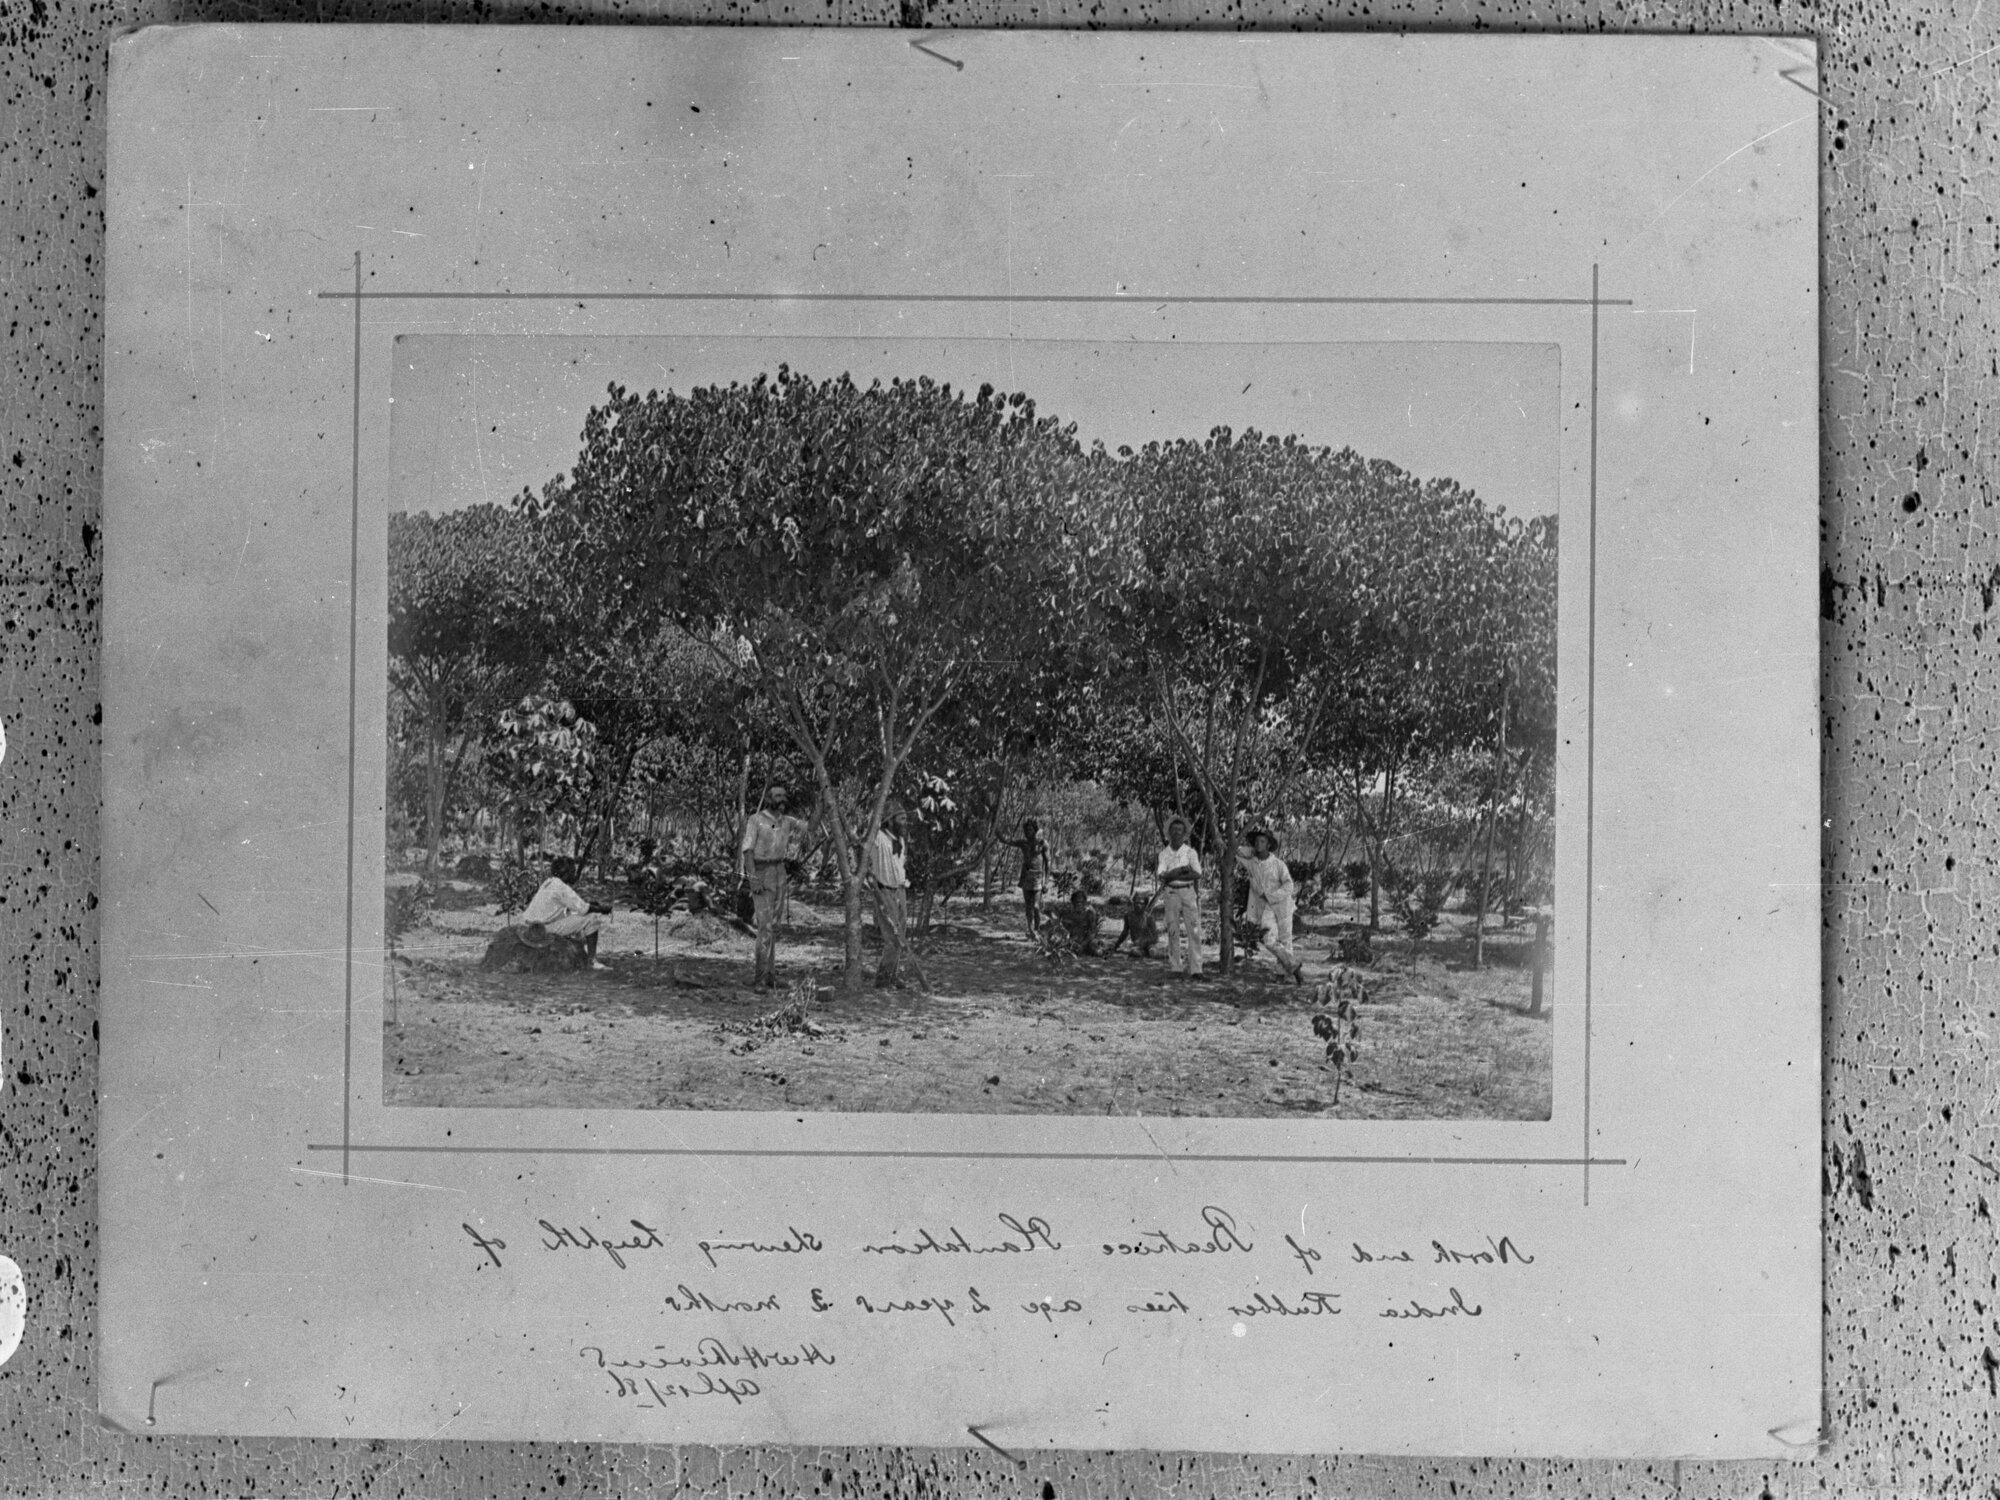 North end of Beatrice Plantation shewing heighth of
India Rubber trees age 2 years 2 months.
Apl 12/86.